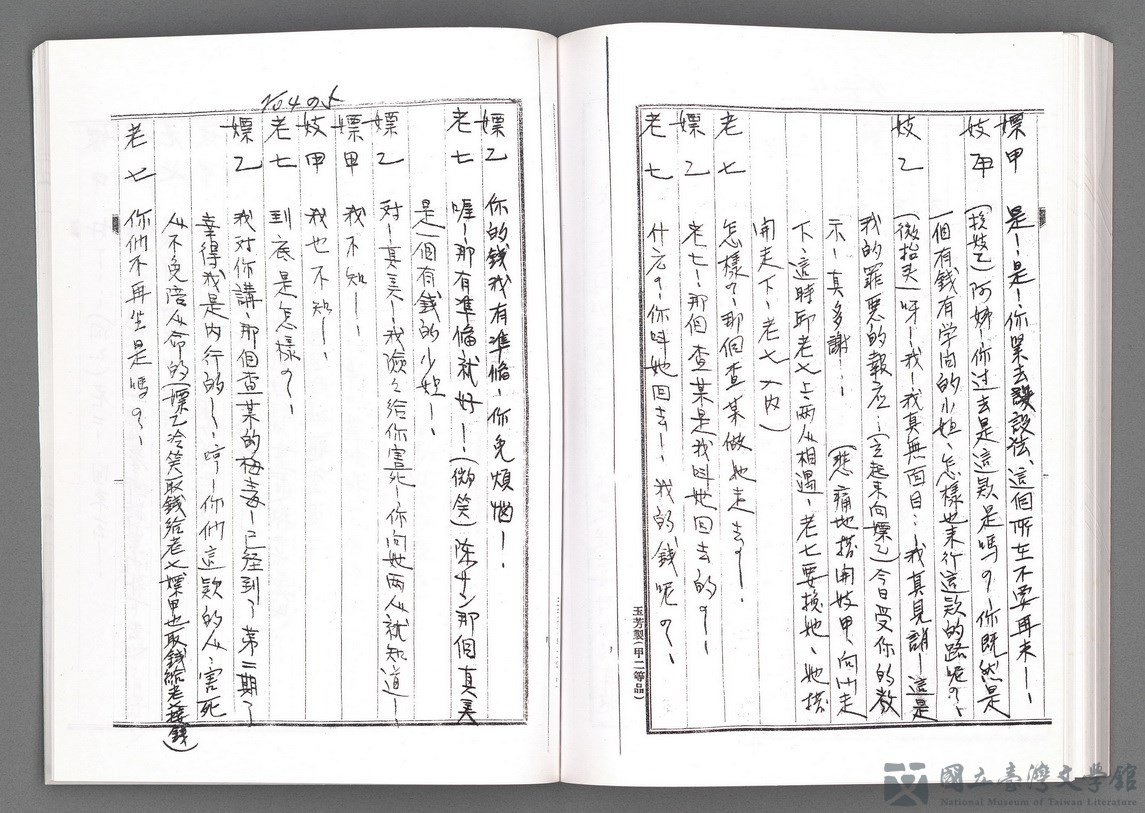 嫖甲 是－是！、你累去設設法、這個所在不要再来－－
妓甲 (挨妓乙)阿姊、你过去是這款是嗎？、你既然是
一個有錢有学问的小姐、怎樣也来行這款的路呢？、
妓乙 (微抬头)呀－我－我真無面目…我真見誚－這是
我的罪惡的報应…(立起来向嫖乙)今日受你的教
示－真多謝－－ (悲痛地搭開妓甲、向 走
下、這時 老七上兩人相遇、老七要挨她、她搭
開走下、老七入内)
老七 怎樣？、那個查某做她走去？－、
嫖乙 老七－那個查某是我叫她回去的？－
老七 什么？、你叫她回去－、我的錢呢？－、
204の
嫖乙 你的錢我有準俻、你免煩惱－、
老七 喔－那有準俻就好－－(微笑)陈サン那個真美
是一個有錢的少姐－、
嫖乙 对－真美－我險々給你害死－你问她兩人就知道－－
嫖甲 我不知－－、
妓甲 我也不知－－、
老七 到底是怎樣？－、
嫖乙 我对你講、那個查某的梅毒－已経到了第二期了
幸得我是内行的－、哼－你们這款的人、害死
人不免陪人命的(嫖乙冷笑取錢給老七嫖甲也取錢給老 錢)
老七 你们不再坐是嗎？－、
玉芳製(甲二等品)
國立臺灣文學館
National Museum of Taiwan Literature